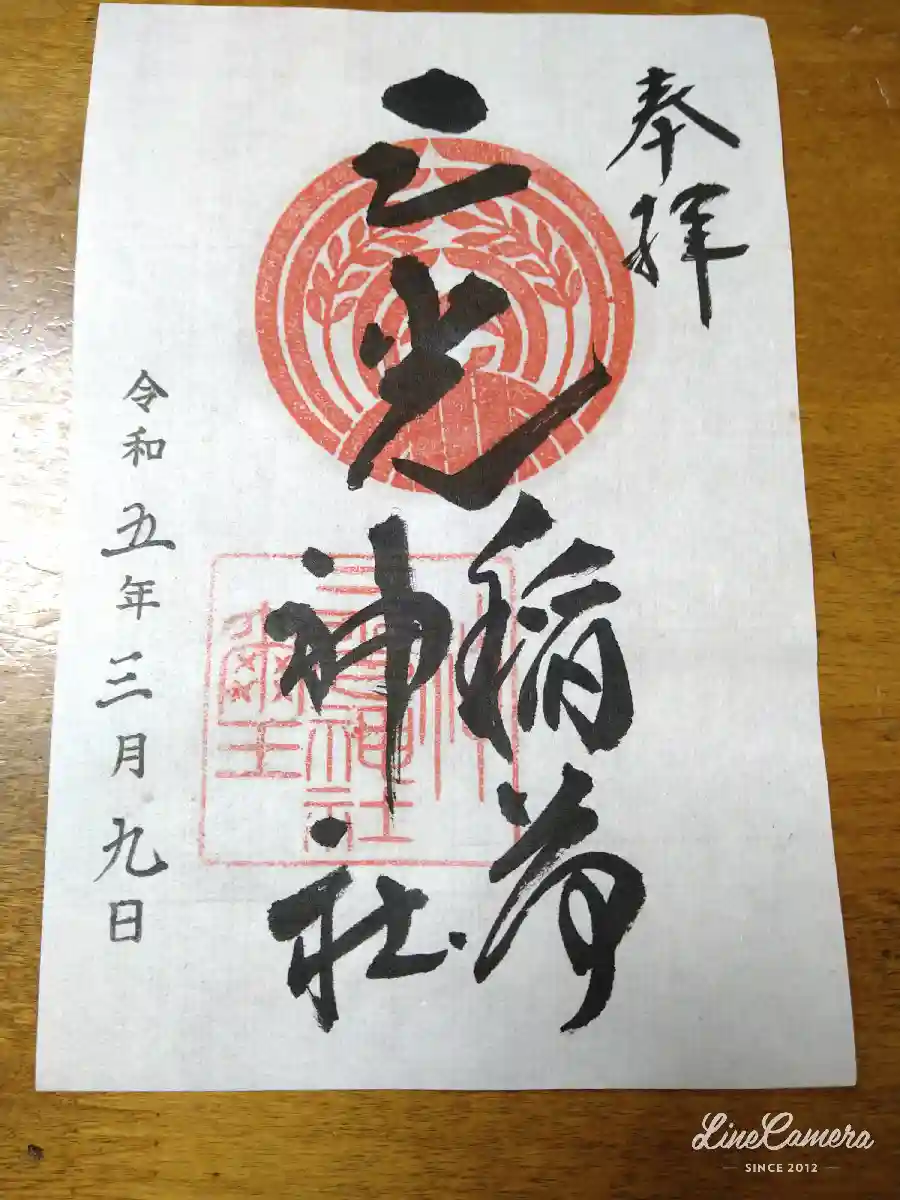 奉拝
三光
稲荷
神社
令和五年三月九日
LineCamera
SINCE 2012